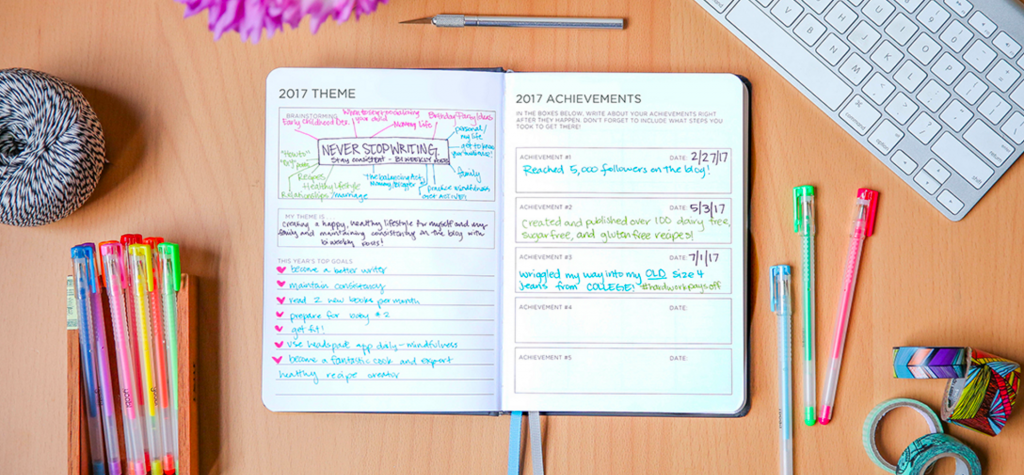 2017 THEME
BRAINSTORMING
Early childhood Dev.
your child
Mommy Life
Birthday Party Ideas
personal/
my life
NEVER STOP WRITING
Stay consistent - BI WEEKLY
"How to's"
Recipes
Healthy lifestyle
Relationships/marriage
The balancing Act
family
practice mindfulness
MY THEME IS...
creating a happy, healthy lifestyle for myself and my
family and maintaining consistency on the blog with
bi weekly posts!
THIS YEAR'S TOP GOALS
become a better writer
maintain consistency
read 2 new books per month
prepare for baby #2
get fit!
use headspace app daily - mindfulness
become a fantastic cook and expert
healthy recipe creator
2017 ACHIEVEMENTS
IN THE BOXES BELOW, WRITE ABOUT YOUR ACHIEVEMENTS RIGHT
AFTER THEY HAPPEN. DON'T FORGET TO INCLUDE WHAT STEPS YOU
TOOK TO GET THERE!
ACHIEVEMENT #1 DATE: 2/27/17
Reached 5,000 followers on the blog!
ACHIEVEMENT #2 DATE: 5/3/17
Created and published over 100 dairy free,
sugar free, and gluten free recipes!
ACHIEVEMENT #3 DATE: 7/1/17
wriggled my way into my OLD size 4
jeans from COLLEGE! #hardworkpaysoff
ACHIEVEMENT #4 DATE:
ACHIEVEMENT #5 DATE: